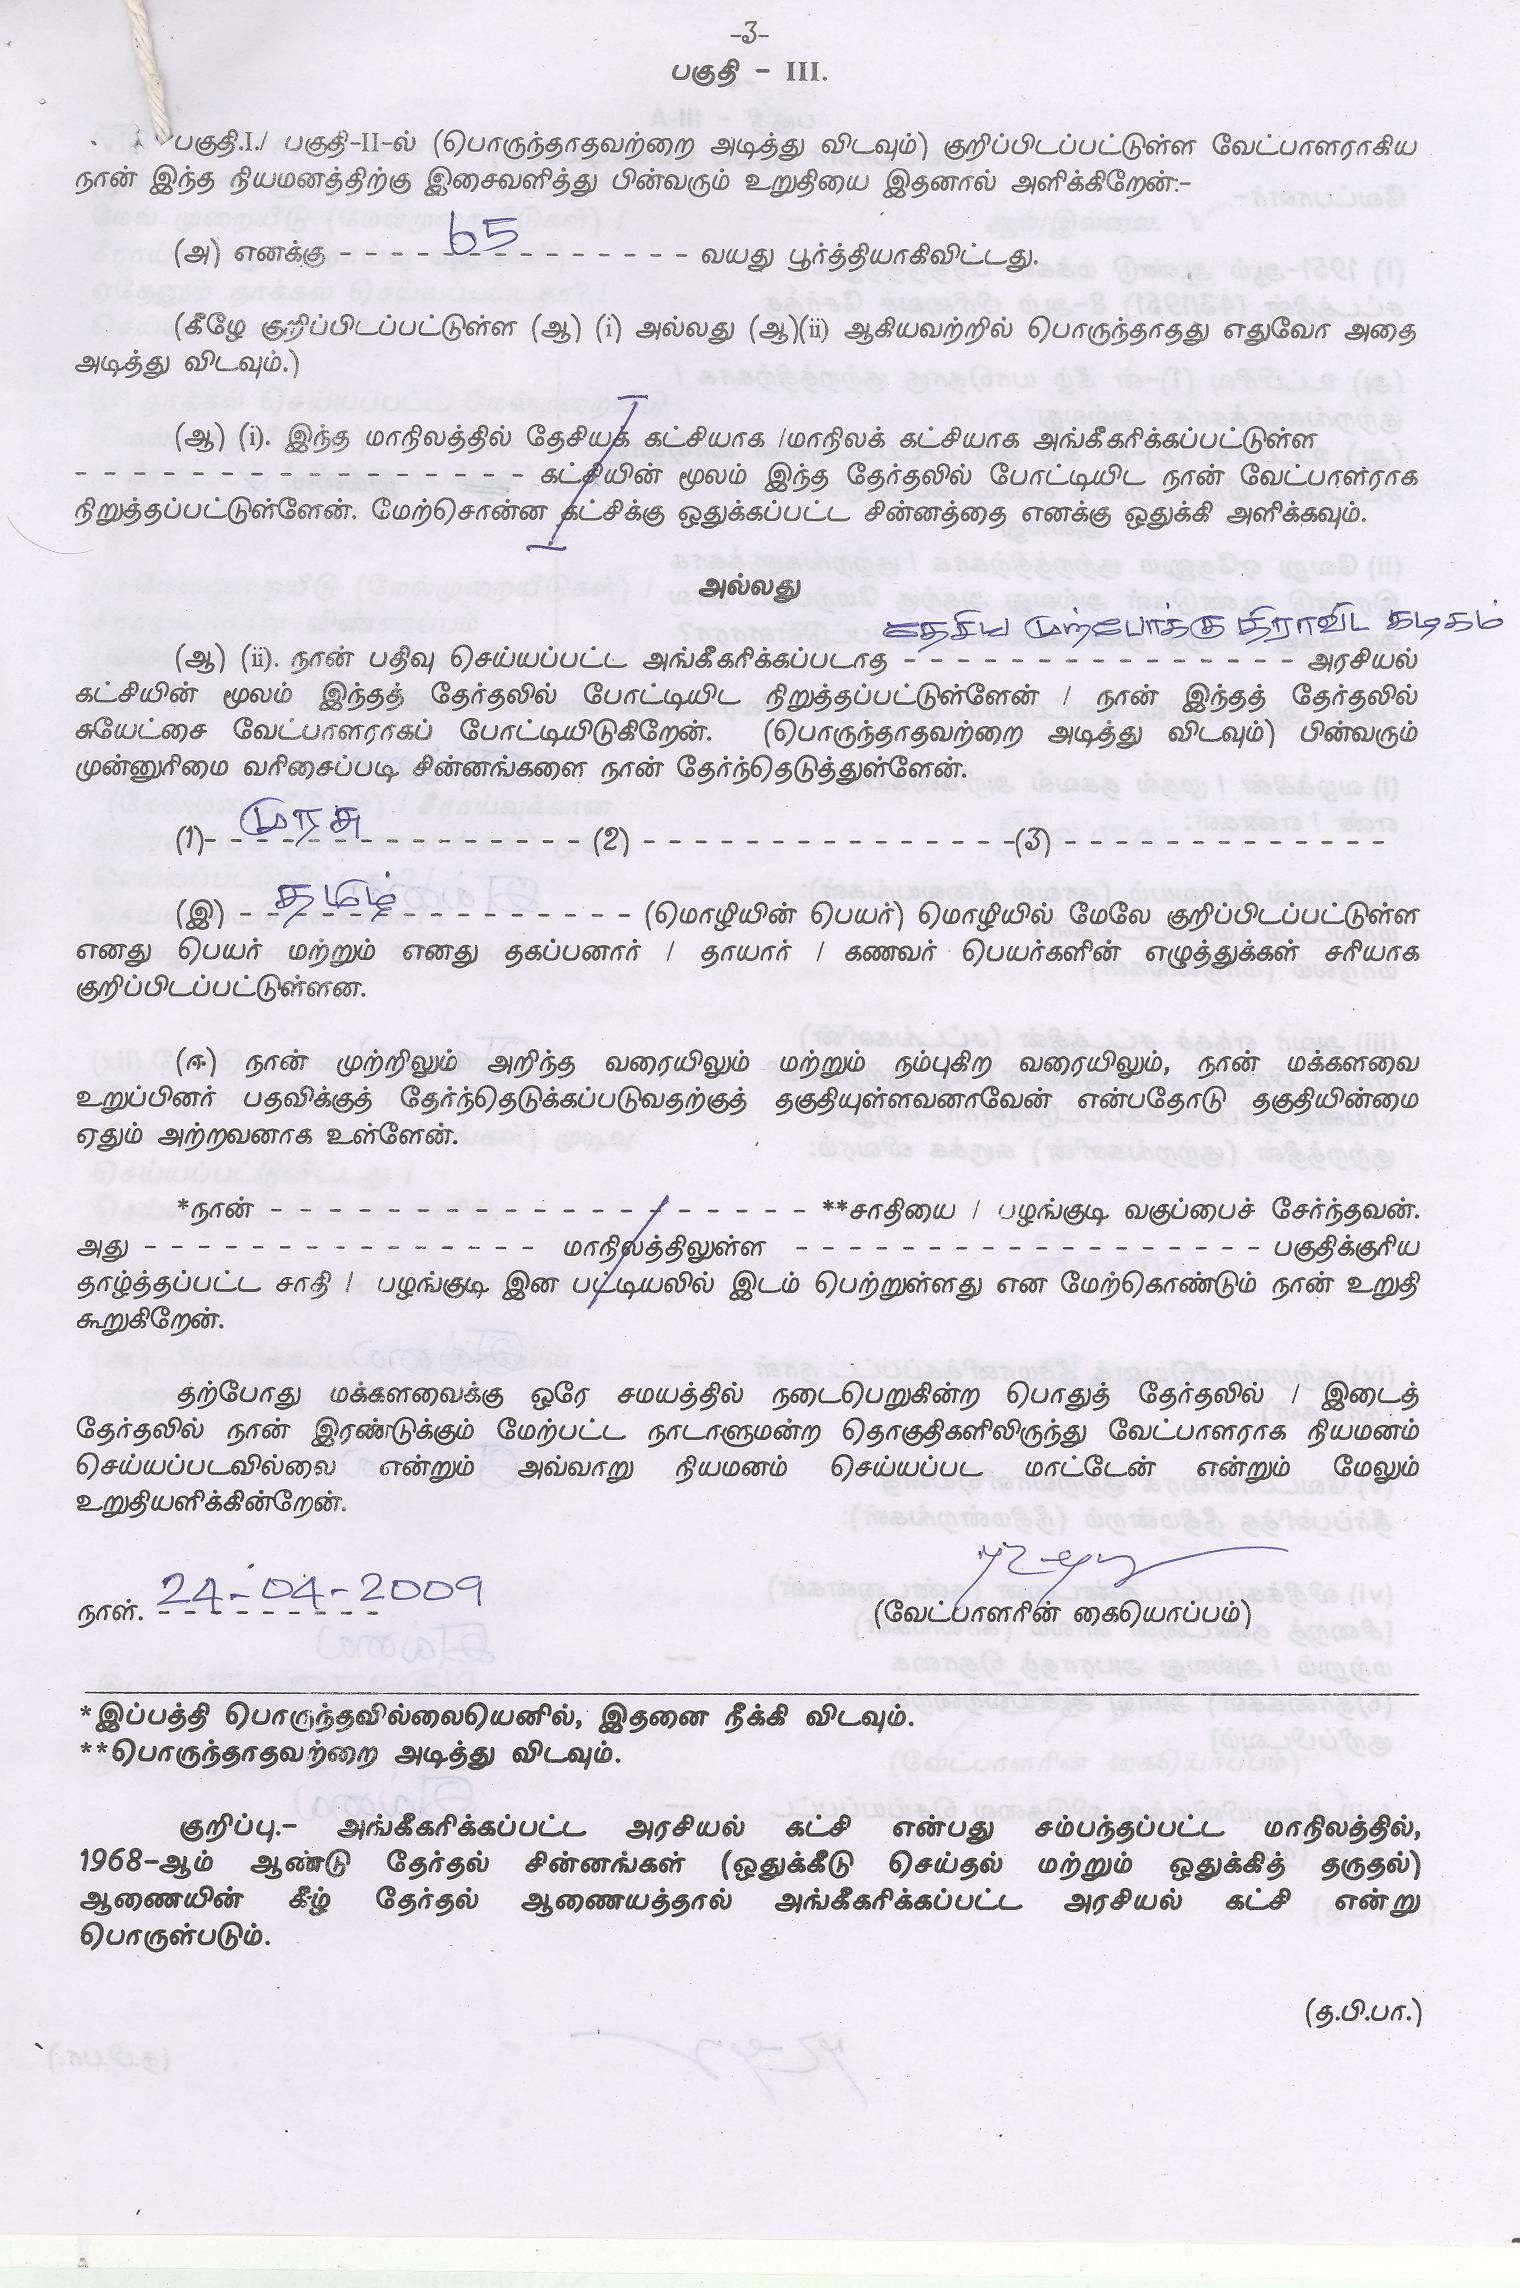 -3-
பகுதி - III.
பகுதி.I./ பகுதி-II-ல் (பொருந்தாதவற்றை அடித்து விடவும்) குறிப்பிடப்பட்டுள்ள வேட்பாளராகிய
நான் இந்த நியமனத்திற்கு இசைவளித்து பின்வரும் உறுதியை இதனால் அளிக்கிறேன்:-
65
(அ) எனக்கு - - - - - - - - - - - - - - - வயது பூர்த்தியாகிவிட்டது.
(கீழே குறிப்பிடப்பட்டுள்ள (ஆ) (i) அல்லது (ஆ)(ii) ஆகியவற்றில் பொருந்தாதது எதுவோ அதை
அடித்து விடவும்.)
(ஆ) (i). இந்த மாநிலத்தில் தேசியக் கட்சியாக /மாநிலக் கட்சியாக அங்கீகரிக்கப்பட்டுள்ள
- - - - - - - - - - - - - - - - - - - கட்சியின் மூலம் இந்த தேர்தலில் போட்டியிட நான் வேட்பாளராக
நிறுத்தப்பட்டுள்ளேன். மேற்சொன்ன கட்சிக்கு ஒதுக்கப்பட்ட சின்னத்தை எனக்கு ஒதுக்கி அளிக்கவும்.
அல்லது
தேசிய முற்போக்கு திராவிட கழகம்
(ஆ) (ii). நான் பதிவு செய்யப்பட்ட அங்கீகரிக்கப்படாத - - - - - - - - - - - - - - - - அரசியல்
கட்சியின் மூலம் இந்தத் தேர்தலில் போட்டியிட நிறுத்தப்பட்டுள்ளேன் / நான் இந்தத் தேர்தலில்
சுயேட்சை வேட்பாளராகப் போட்டியிடுகிறேன். (பொருந்தாதவற்றை அடித்து விடவும்) பின்வரும்
முன்னுரிமை வரிசைப்படி சின்னங்களை நான் தேர்ந்தெடுத்துள்ளேன்.
முரசு
(1)- - - - - - - - - - - - - - - - (2) - - - - - - - - - - - - - - - -(3) - - - - - - - - - - - - - -
தமிழ்
(இ) - - - - - - - - - - - - - - - - - (மொழியின் பெயர்) மொழியில் மேலே குறிப்பிடப்பட்டுள்ள
எனது பெயர் மற்றும் எனது தகப்பனார் / தாயார் / கணவர் பெயர்களின் எழுத்துக்கள் சரியாக
குறிப்பிடப்பட்டுள்ளன.
(ஈ) நான் முற்றிலும் அறிந்த வரையிலும் மற்றும் நம்புகிற வரையிலும், நான் மக்களவை
உறுப்பினர் பதவிக்குத் தேர்ந்தெடுக்கப்படுவதற்குத் தகுதியுள்ளவனாவேன் என்பதோடு தகுதியின்மை
ஏதும் அற்றவனாக உள்ளேன்.
*நான் - - - - - - - - - - - - - - - - - - - - - - - **சாதியை / பழங்குடி வகுப்பைச் சேர்ந்தவன்.
அது - - - - - - - - - - - - - - - - - மாநிலத்திலுள்ள - - - - - - - - - - - - - - - - - - - - பகுதிக்குரிய
தாழ்த்தப்பட்ட சாதி / பழங்குடி இன பட்டியலில் இடம் பெற்றுள்ளது என மேற்கொண்டும் நான் உறுதி
கூறுகிறேன்.
தற்போது மக்களவைக்கு ஒரே சமயத்தில் நடைபெறுகின்ற பொதுத் தேர்தலில் / இடைத்
தேர்தலில் நான் இரண்டுக்கும் மேற்பட்ட நாடாளுமன்ற தொகுதிகளிலிருந்து வேட்பாளராக நியமனம்
செய்யப்படவில்லை என்றும் அவ்வாறு நியமனம் செய்யப்பட மாட்டேன் என்றும் மேலும்
உறுதியளிக்கின்றேன்.
நாள். 24-04-2009
(வேட்பாளரின் கையொப்பம்)
*இப்பத்தி பொருந்தவில்லையெனில், இதனை நீக்கி விடவும்.
**பொருந்தாதவற்றை அடித்து விடவும்.
குறிப்பு.- அங்கீகரிக்கப்பட்ட அரசியல் கட்சி என்பது சம்பந்தப்பட்ட மாநிலத்தில்,
1968-ஆம் ஆண்டு தேர்தல் சின்னங்கள் (ஒதுக்கீடு செய்தல் மற்றும் ஒதுக்கித் தருதல்)
ஆணையின் கீழ் தேர்தல் ஆணையத்தால் அங்கீகரிக்கப்பட்ட அரசியல் கட்சி என்று
பொருள்படும்.
(த.பி.பா.)